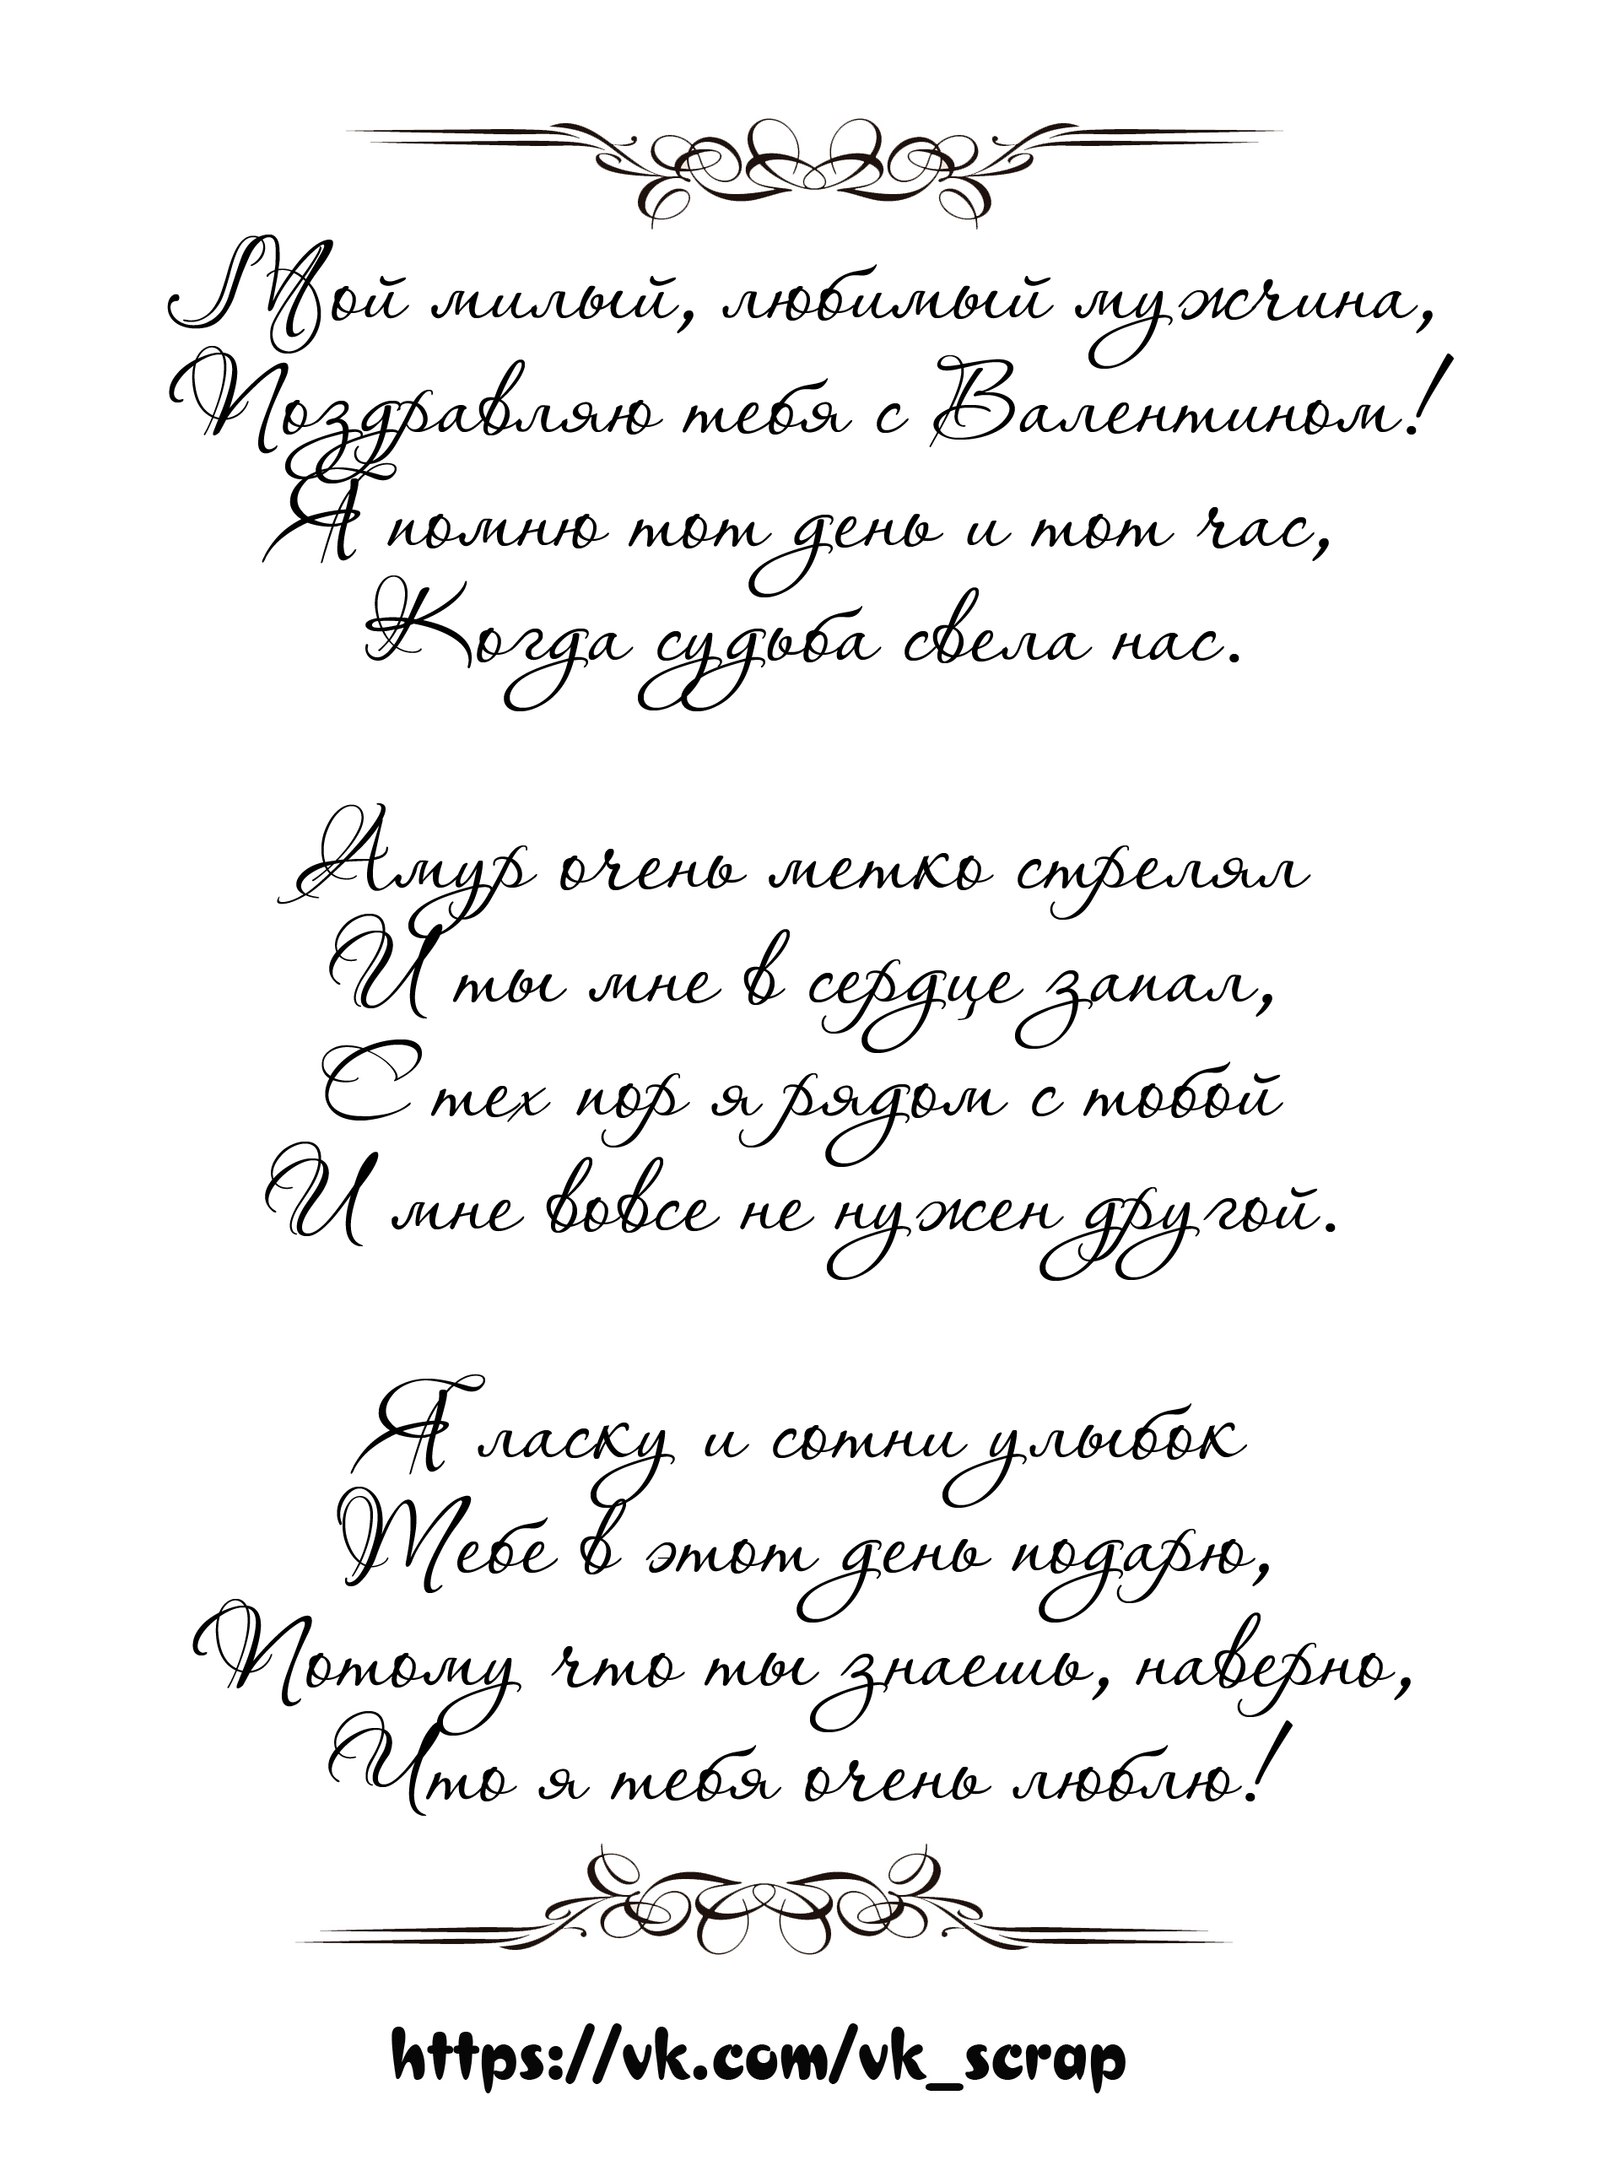 Мой милый, любимый мужчина,
Поздравляю тебя с Валентином!
Я помню тот день и тот час,
Когда судьба свела нас.
Амур очень метко стрелял
И ты мне в сердце запал,
С тех пор я рядом с тобой
И мне вовсе не нужен другой.
Я ласку и сотни улыбок
Тебе в этот день подарю,
Потому что ты знаешь, наверно,
Что я тебя очень люблю!
https://vk.com/vk_scrap